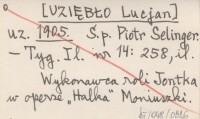 [UZIĘBŁO Lucjan]
uz. 1905. Śp. Piotr Selinger.
- Tyg. Il. nr 14: 258, il.
Wykonawca roli Jontka
w operze „Halka" Moniuszki.